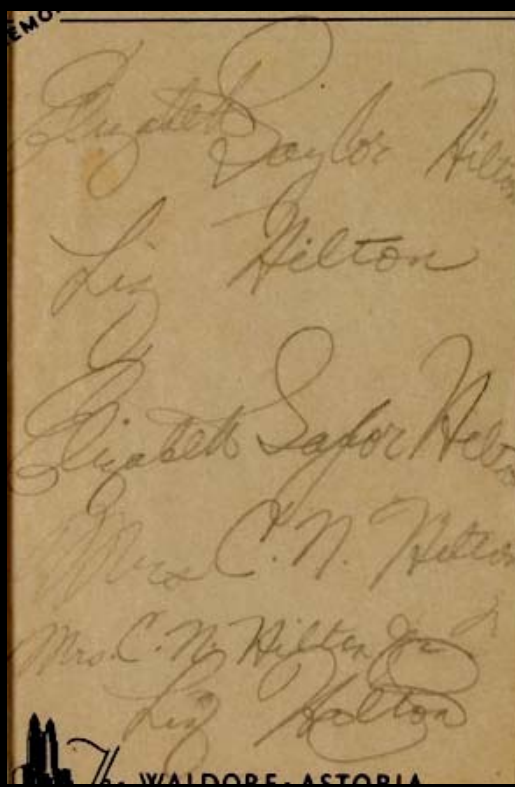 EMO
Elizabeth Taylor Hilton
Liz Hilton
Elizabeth Taylor Hilton
Mrs C. N. Hilton
Mrs. C. N. Hilton Jr
Liz Hilton
The WALDORF-ASTORIA